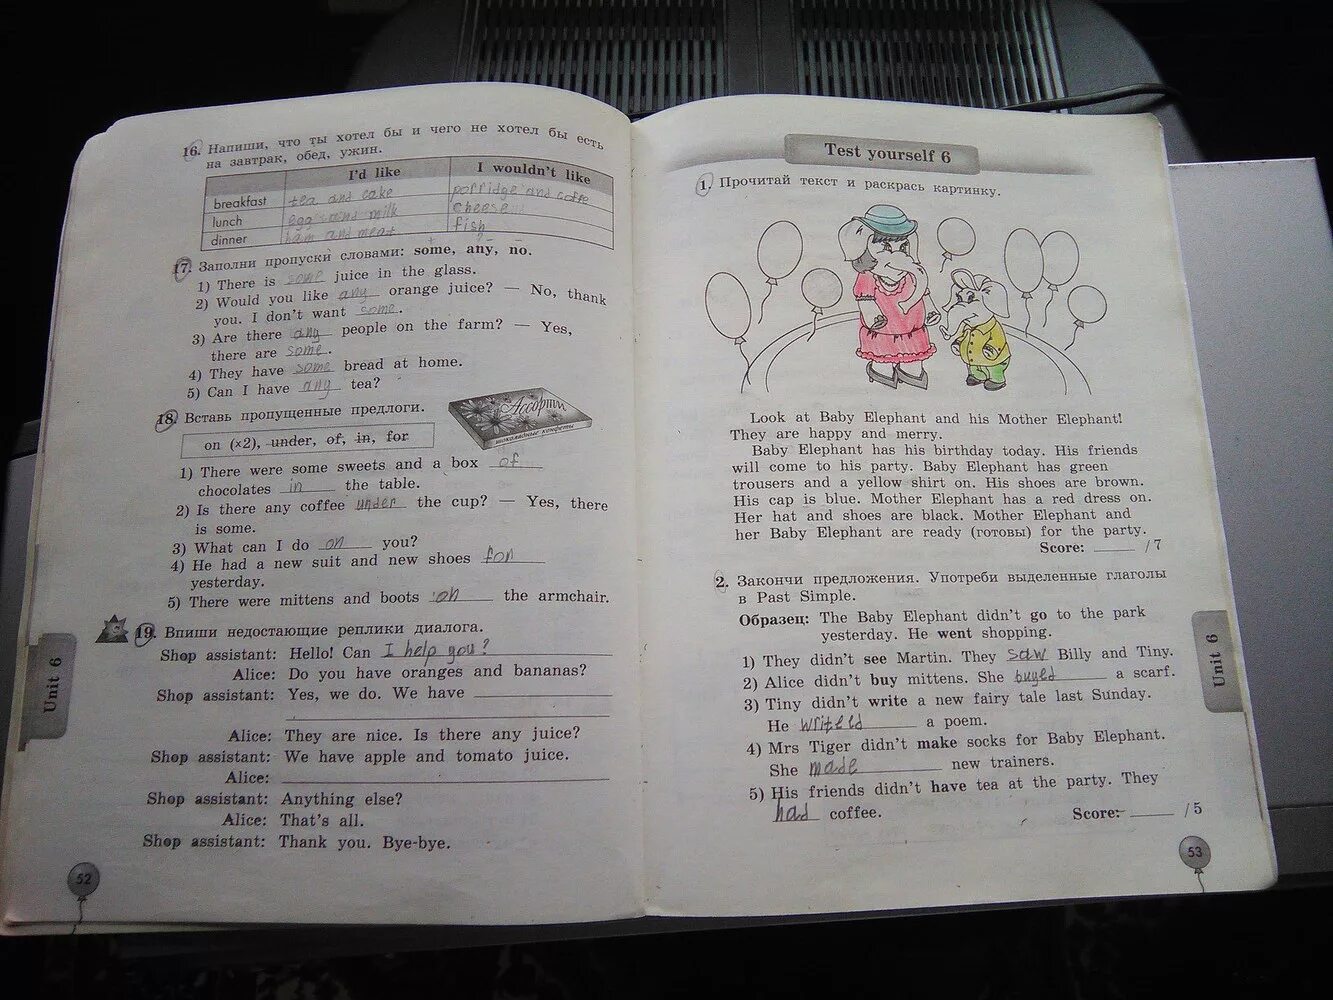 16. Напиши, что ты хотел бы и чего не хотел бы есть
на завтрак, обед, ужин.
I'd like I wouldn't like
breakfast tea and cake porridge and coffe
lunch egg and milk cheese
dinner ham and meat fish
17. Заполни пропуски словами: some, any, no.
1) There is some juice in the glass.
2) Would you like any orange juice? — No, thank
you. I don't want some.
3) Are there any people on the farm? — Yes,
there are some.
4) They have some bread at home.
5) Can I have any tea?
18. Вставь пропущенные предлоги.
Ассорти
шоколадные конфеты
on (×2), under, of, in, for
1) There were some sweets and a box of
chocolates in the table.
2) Is there any coffee under the cup? — Yes, there
is some.
3) What can I do on you?
4) He had a new suit and new shoes fon
yesterday.
5) There were mittens and boots on the armchair.
19. Впиши недостающие реплики диалога.
Shop assistant: Hello! Can I help you?
Alice: Do you have oranges and bananas?
Shop assistant: Yes, we do. We have
Alice: They are nice. Is there any juice?
Shop assistant: We have apple and tomato juice.
Alice:
Shop assistant: Anything else?
Alice: That's all.
Shop assistant: Thank you. Bye-bye.
Unit 6
52
Test yourself 6
1. Прочитай текст и раскрась картинку.
Look at Baby Elephant and his Mother Elephant!
They are happy and merry.
Baby Elephant has his birthday today. His friends
will come to his party. Baby Elephant has green
trousers and a yellow shirt on. His shoes are brown.
His cap is blue. Mother Elephant has a red dress on.
Her hat and shoes are black. Mother Elephant and
her Baby Elephant are ready (готовы) for the party.
Score: /7
2. Закончи предложения. Употреби выделенные глаголы
в Past Simple.
Образец: The Baby Elephant didn't go to the park
yesterday. He went shopping.
1) They didn't see Martin. They saw Billy and Tiny.
2) Alice didn't buy mittens. She buyed a scarf.
3) Tiny didn't write a new fairy tale last Sunday.
He writeed a poem.
4) Mrs Tiger didn't make socks for Baby Elephant.
She made new trainers.
5) His friends didn't have tea at the party. They
had coffee.
Score: /5
Unit 6
53